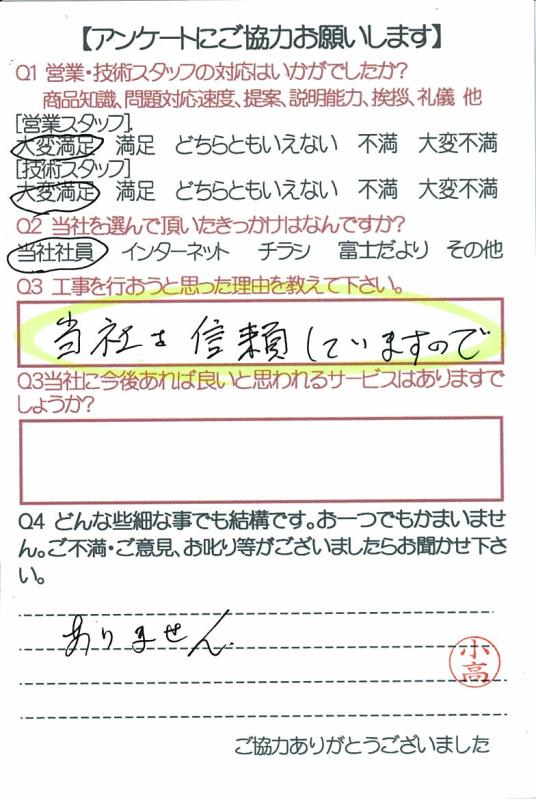 【アンケートにご協力お願いします】
Q1 営業・技術スタッフの対応はいかがでしたか?
商品知識、問題対応速度、提案、説明能力、挨拶、礼儀 他
[営業スタッフ]
大変満足 満足 どちらともいえない 不満 大変不満
[技術スタッフ]
大変満足 満足 どちらともいえない 不満 大変不満
Q2 当社を選んで頂いたきっかけはなんですか?
当社社員 インターネット チラシ 富士だより その他
Q3 工事を行おうと思った理由を教えて下さい。
当社を信頼していますので
Q3当社に今後あれば良いと思われるサービスはありますで
しょうか?
Q4 どんな些細な事でも結構です。お一つでもかまいませ
ん。ご不満・ご意見、お叱り等がございましたらお聞かせ下さ
い。
ありません
小高
ご協力ありがとうございました